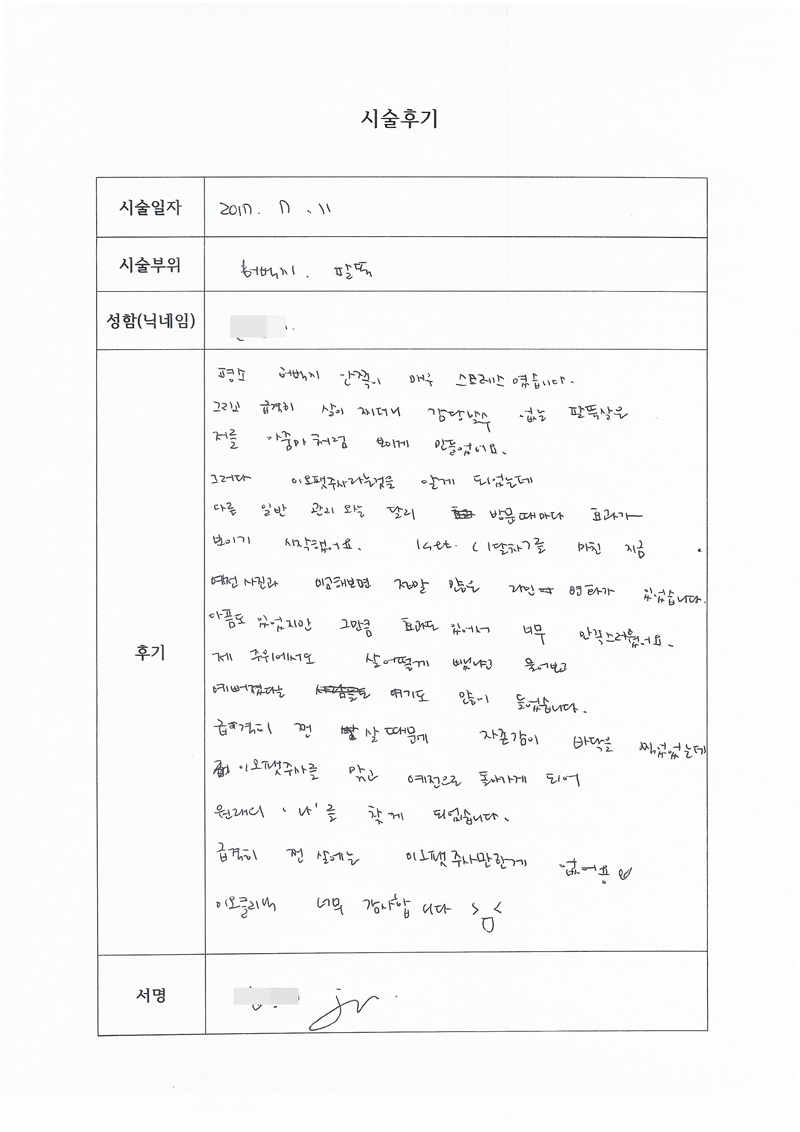 시술후기
시술일자 2017. 7. 11
시술부위 허벅지. 팔뚝
성함(닉네임)
후기
평소 허벅지 안쪽이 매우 스트레스였습니다.
그리고 급격히 살이 찌더니 감당할수 없는 팔뚝살은
저를 아줌마처럼 보이게 만들었어요.
그러다 이오팻주사라는것을 알게 되었는데
다른 일반 관리와는 달리 방문때마다 효과가
보이기 시작했어요. 1set. (1달차)를 마친 지금
예전 사진과 비교해보면 정말 많은 라인 변화가 있었습니다.
아픔도 있었지만 그만큼 효과도 있어서 너무 만족스러웠어요.
제 주위에서도 살어떻게 뺐냐고 물어보고
예뻐졌다는 얘기도 많이 들었습니다.
급격히 찐 살 때문에 자존감이 바닥을 찍었었는데
이오팻주사를 맞고 예전으로 돌아가게 되어
원래의 '나'를 찾게 되었습니다.
급격히 찐 살에는 이오팻주사만한게 없어용♡
이오클리닉 너무 감사합니다 >ㅁ<
서명